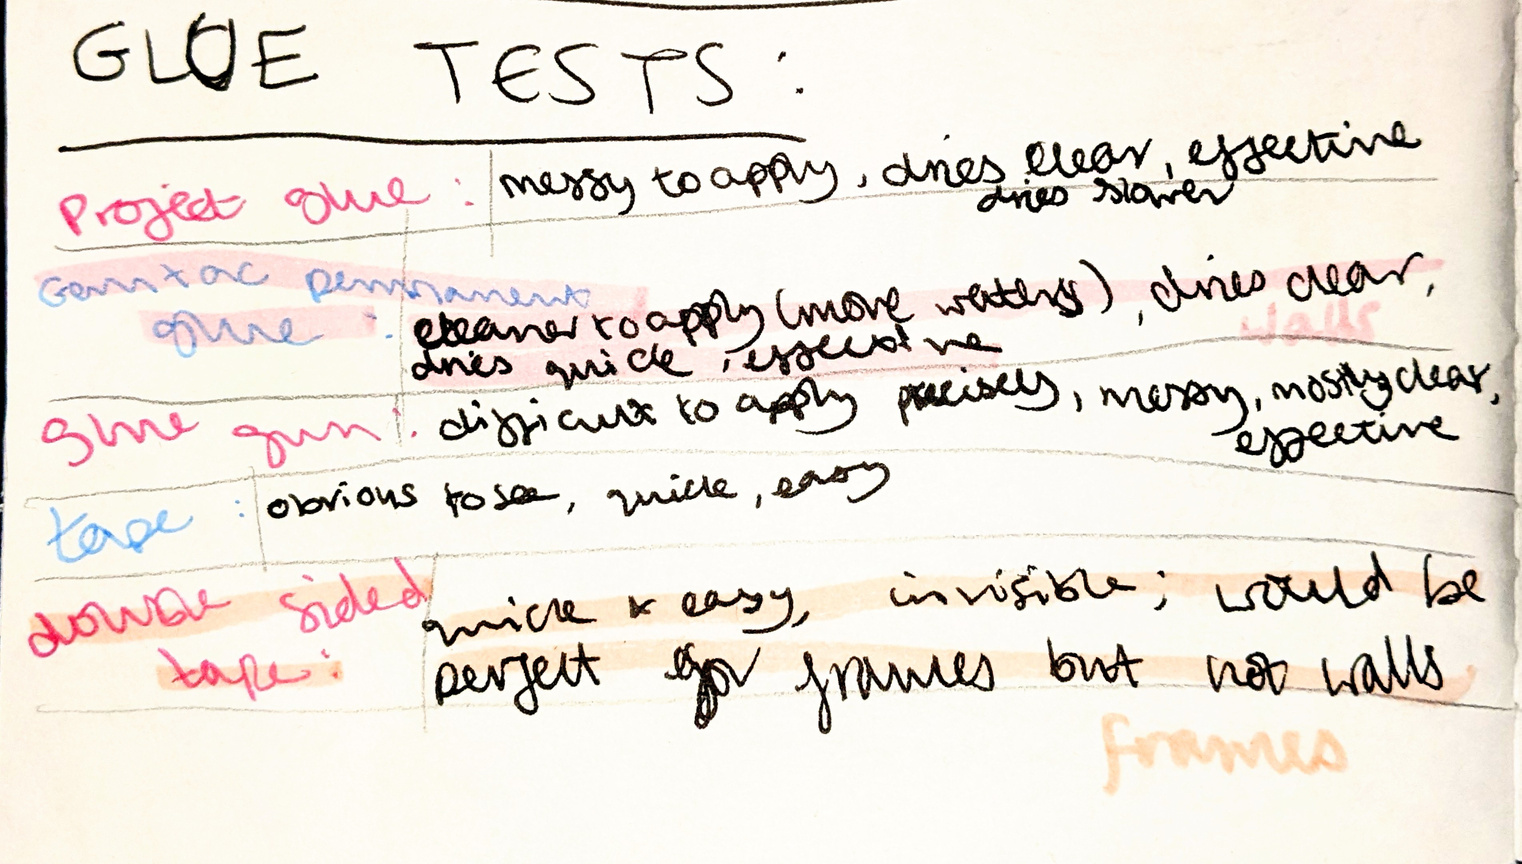 GLUE TESTS:
Project glue: messy to apply, dries clear, effective
dries slower
Gemtac permanent
glue: cleaner to apply (more watery), dries clear,
walls
dries quick, effective
glue gun: difficult to apply precisely, messy, mostly clear,
effective
tape: obvious to see, quick, easy
double sided quick & easy, invisible; would be
tape: perfect for frames but not walls
frames